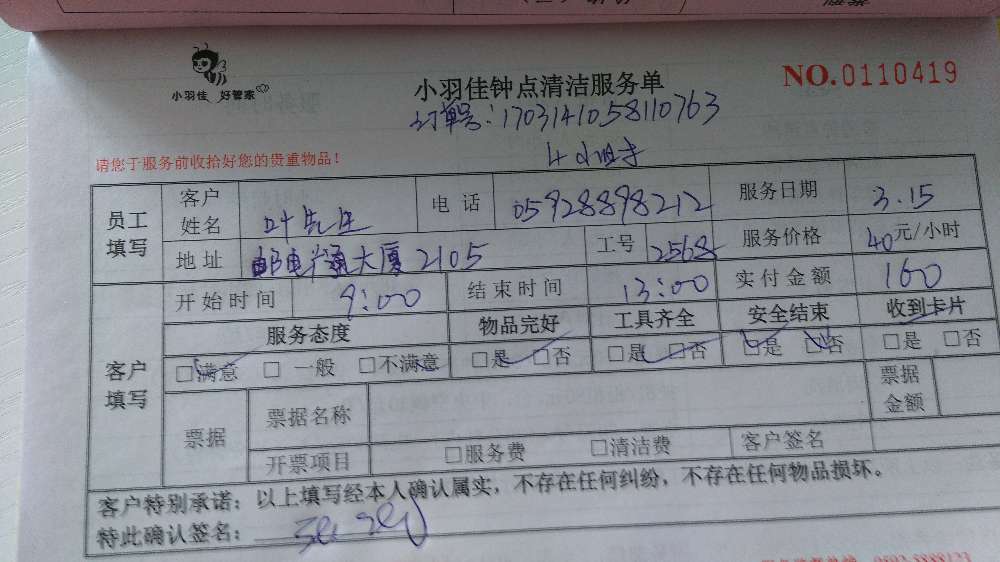 小羽佳 好管家
小羽佳钟点清洁服务单
NO.0110419
订单号:1703141058110763
4小时
请您于服务前收拾好您的贵重物品!
员工填写
客户姓名 叶先生 电话 05928898212 服务日期 3.15
地址 邮电 通大厦2105 工号 2568 服务价格 40元/小时
客户填写
开始时间 9:00 结束时间 13:00 实付金额 160
服务态度 物品完好 工具齐全 安全结束 收到卡片
□满意 □一般 □不满意 □是 □否 □是 □否 □是 □否 □是 □否
票据 票据名称 票据金额
开票项目 □服务费 □清洁费 客户签名
客户特别承诺:以上填写经本人确认属实,不存在任何纠纷,不存在任何物品损坏。
特此确认签名: